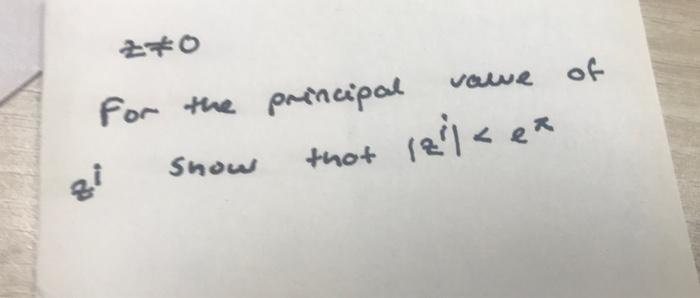 z≠0
For the principal value of
z^i show that |z^i| < e^π